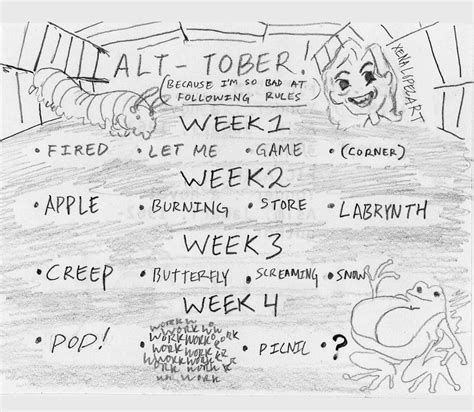 ALT-TOBER!
(BECAUSE I'M SO BAD AT
FOLLOWING RULES
XENALIPELART
WEEK 1
• FIRED • LET ME • GAME • (CORNER)
WEEK 2
• APPLE • BURNING • STORE • LABRYNTH
WEEK 3
• CREEP • BUTTERFLY • SCREAMING • SNOW
WEEK 4
WORK W
WORK WW
WORKWORK ORK
• POD! • WORKWORK • PICNIC • ?
WORK WORK
WORK WORK
WORK